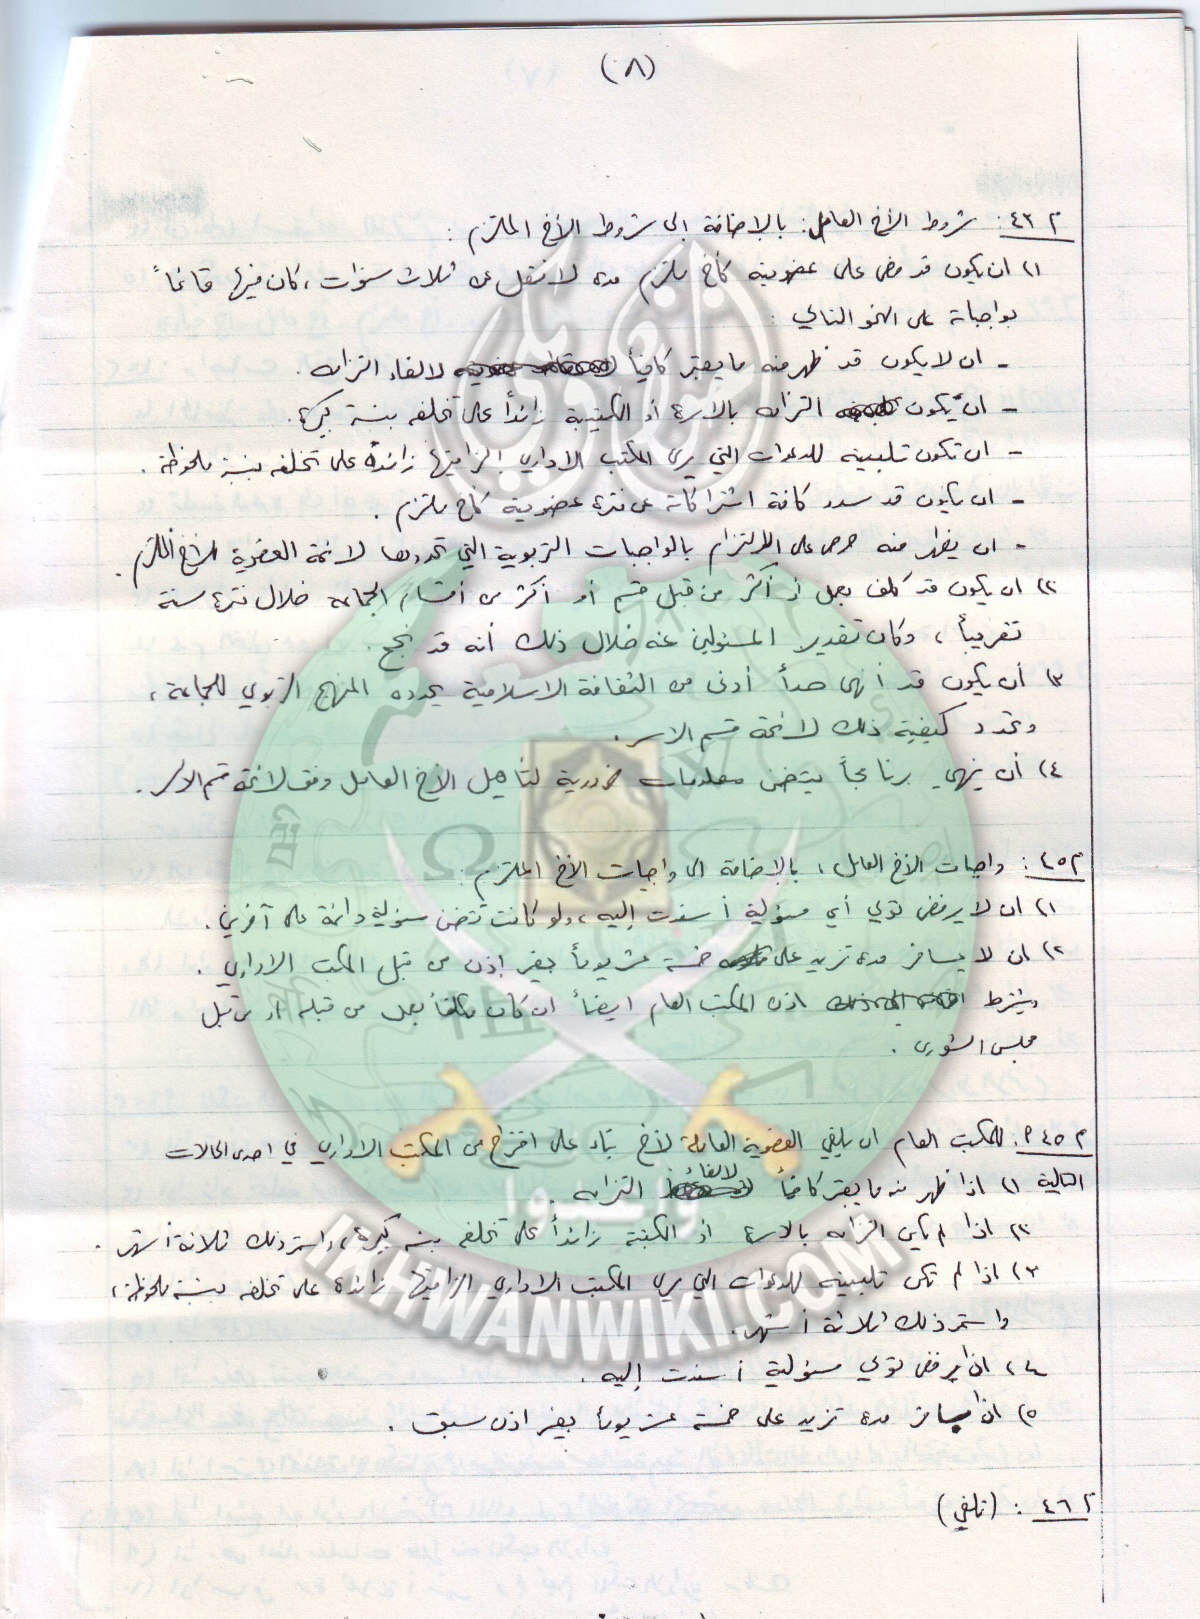 (٨)
م ٤٣ : شروط الأخ العامل : بالإضافة الى شروط الأخ الملتزم :
١) ان يكون قد مضى على عضويته كأخ ملتزم مدة لا تقل عن ثلاث سنوات ، كان فيها قائماً
بواجباته على النحو التالي :
- ان لا يكون قد ظهر منه ما يعتبر كافياً لالغاء التزامه .
- ان يكون التزامه بالاسرة أو الكتيبة زائداً على تخلفه بنسبة كبيرة .
- ان تكون تلبيته للدعوات التي يرى المكتب الاداري إلزاميتها زائدة على تخلفه بنسبة ملحوظة .
- ان يكون قد سدد كافة اشتراكاته عن فترة عضويته كأخ ملتزم .
- ان يظهر منه حرص على الالتزام بالواجبات التربوية التي تحددها لائحة العضوية للأخ الملتزم .
٢) ان يكون قد كلف بعمل أو أكثر من قبل قسم أو أكثر من أقسام الجماعة خلال فترة سنة
تقريباً ، وكان تقدير المسئولين عنه خلال ذلك أنه قد نجح .
٣) أن يكون قد أنهى حداً أدنى من الثقافة الاسلامية يحدده المنهج التربوي للجماعة ،
وتحدد كيفية ذلك لائحة قسم الاسر .
٤) أن ينهي برنامجاً يتضمن معلومات ضرورية لتأهيل الأخ العامل وفق لائحة قسم الاسر .
م ٤٥ : واجبات الأخ العامل ، بالإضافة الى واجبات الأخ الملتزم :
١) ان لا يرفض تولي أي مسئولية أسندت إليه ، ولو كانت تتضمن مسئولية دائمة على آخرين .
٢) ان لا يسافر مدة تزيد على خمسة عشر يوماً بغير إذن من قبل المكتب الاداري .
ويشترط اذن المكتب العام ايضاً ان كان مكلفاً بعمل من قبله أو من قبل
مجلس الشورى .
م ٤٥ ٩ : للمكتب العام ان يلغي العضوية العاملة لأخ بناء على اقتراح من المكتب الاداري في احدى الحالات
التالية ١) اذا ظهر منه ما يعتبر كافياً لالغاء التزامه .
٢) اذا لم يكن التزامه بالاسرة أو الكتيبة زائداً على تخلفه بنسبة كبيرة ، واستمر ذلك ثلاثة أشهر .
٣) اذا لم تكن تلبيته للدعوات التي يرى المكتب الاداري الزاميتها زائدة على تخلفه بنسبة ملحوظة ،
واستمر ذلك ثلاثة أشهر .
٤) اذا رفض تولي مسئولية أسندت إليه .
٥) اذا سافر مدة تزيد على خمسة عشر يوماً بغير اذن مسبق .
م ٤٦ : (تلغي)
إخوان ويكي
وأعدوا
IKHWANWIKI.COM